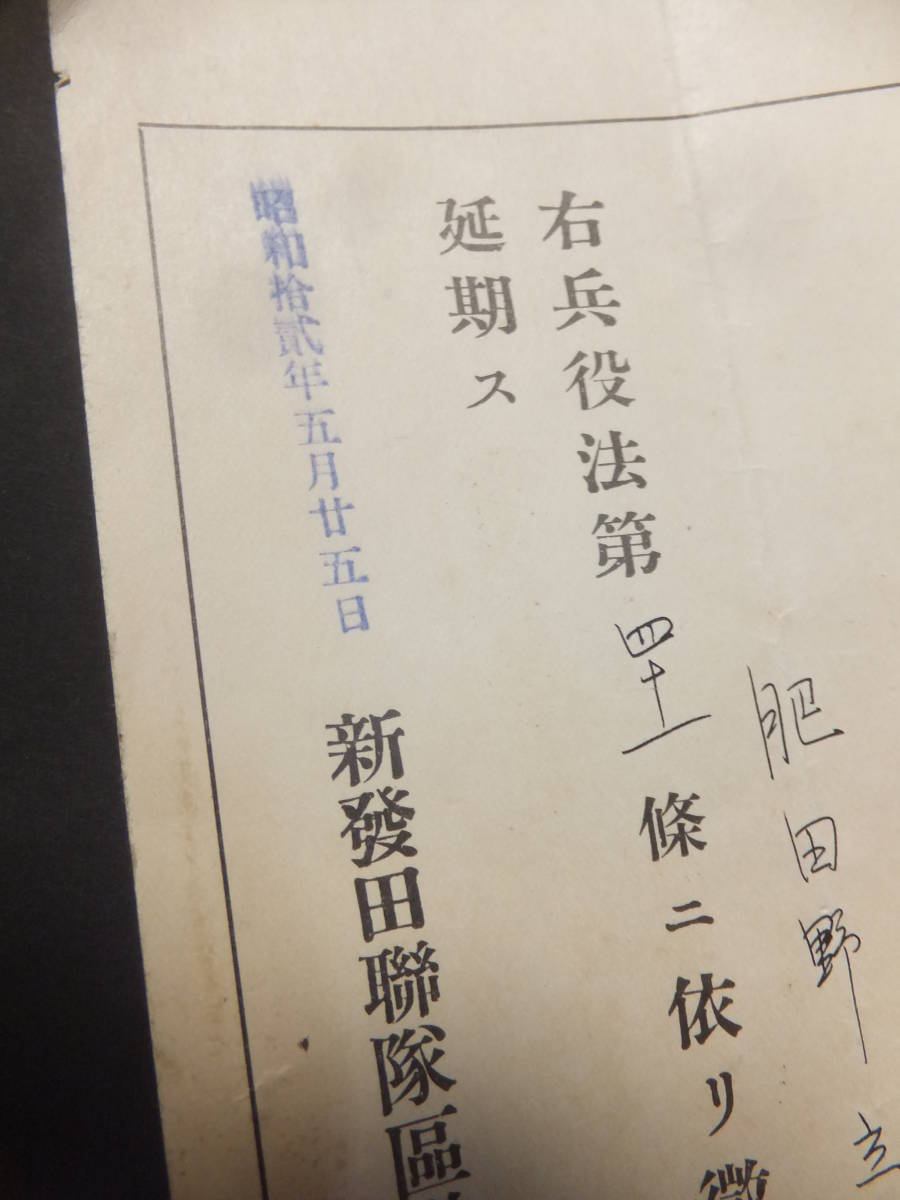 肥田野 立
右兵役法第四十一條ニ依リ徴
延期ス
昭和拾貳年五月廿五日
新發田聯隊區